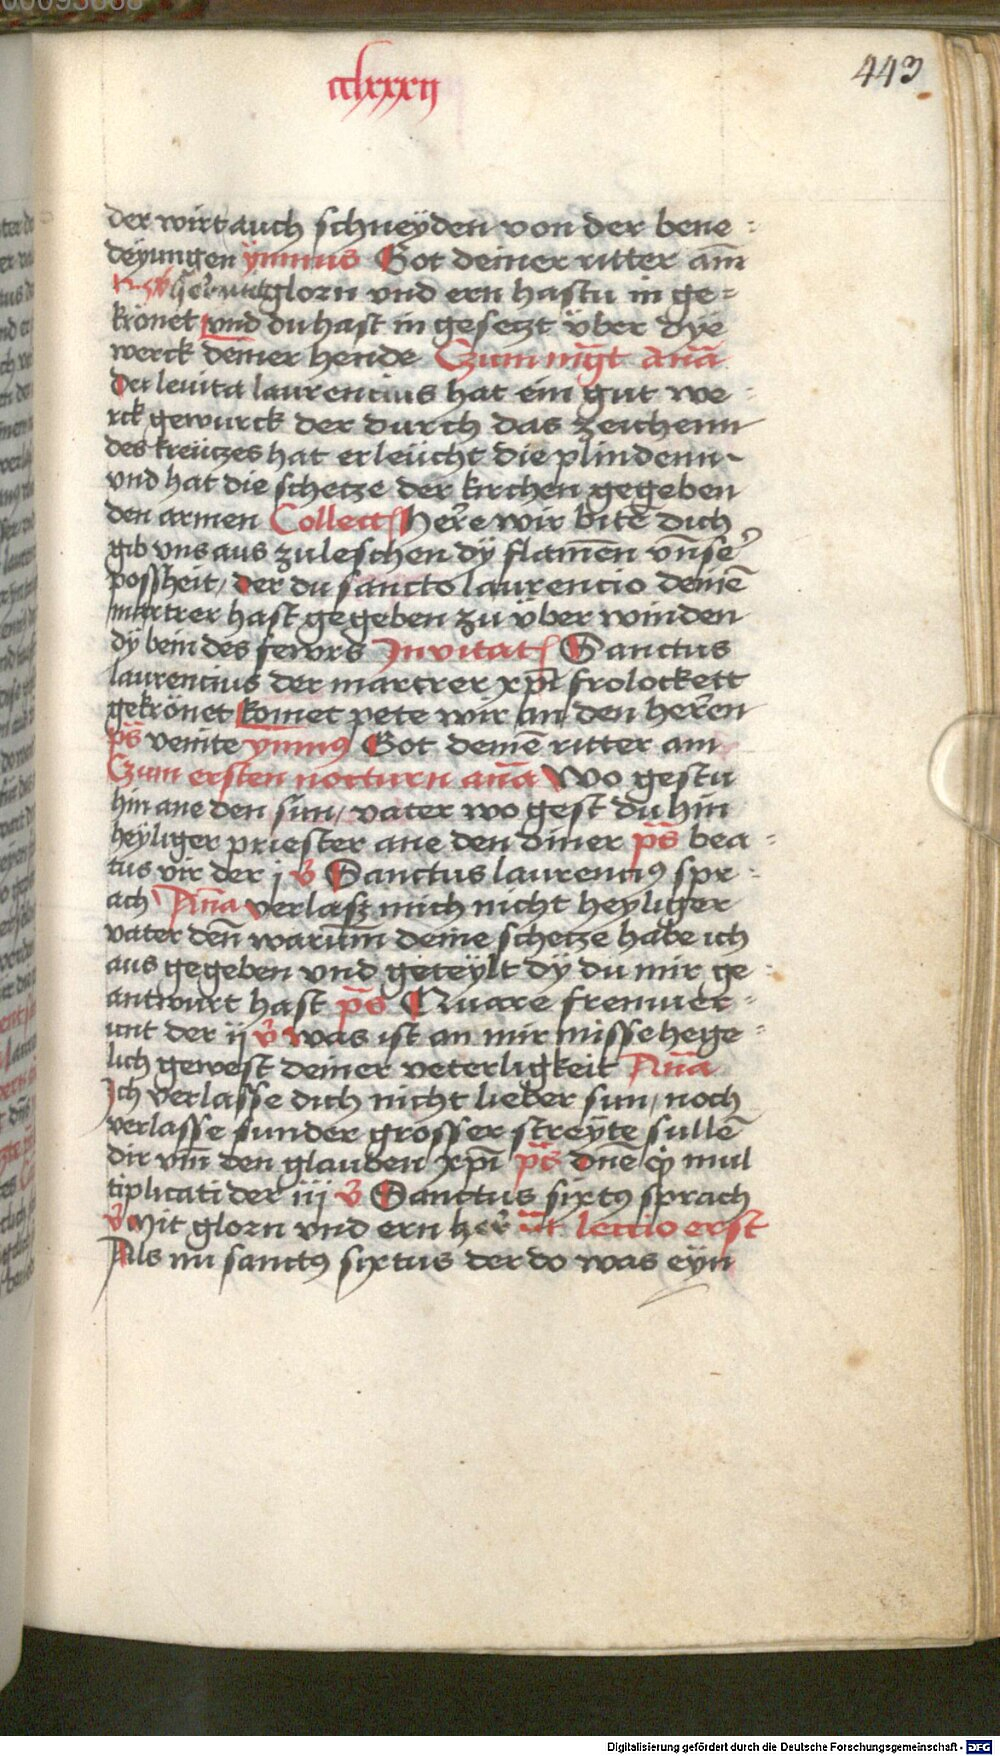 cclxxxij
443
der wirt auch schneÿden von der bene :
deÿungen ÿmnus Got deiner ritter am̄
glorn vnd ern hastu in ge=
krönet vnd du hast in gesetzt über dÿe
werck deiner hende Czum mḡt Anā
Der leuita laurencius hat ein gut we :
rck gewurck der durch das zeichenn
des kreützes hat erleücht die plindenn
vnd hat die schetze der kirchen gegeben
den armen Collect Here wir bitē dich
gib vns aus zuleschen dÿ flam̄en vn̄ser
possheit / der du sancto laurencio deinē
martrer hast gegeben zu über winden
dÿ bein des fewrs Inuitat Sanctus
laurencius der martrer xp̄i frolockett
gekrönet komet pete wir an den heren
p̄s venite ymnꝰ Got deinē ritter am
Czum ersten nocturn anā Wo gestu
hin ane den sun / vater wo gest du hin
heÿliger priester ane den diner p̄s bea :
tus vir der j v̄ Sanctus laurenciꝰ spr :
ach Anā verlasz mich nicht heyliger
vater den̄ warum̄ deine schetze habe ich
aus gegeben vnd geteÿlt dÿ du mir ge :
antwurt hast p̄s Quare fremuer :
unt der ij v̄ was ist an mir missehege :
lich gewest deiner veterligkeit Anā
Ich verlasse dich nicht lieber sun / noch
verlasse sunder grosser streÿte sullē
dir vm̄ den glauben xp̄i p̄s Dn̄e qͥ mul
tiplicati der iij v̄ Sanctus sixtꝰ sprach
v̄ Mit glorn vnd ern her lectio erst
Als nu sanctꝰ sixtus der do was eÿn
Digitalisierung gefördert durch die Deutsche Forschungsgemeinschaft - DFG